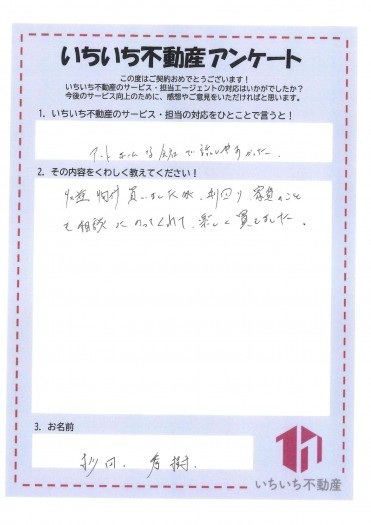 いちいち不動産アンケート
この度はご契約おめでとうございます！
いちいち不動産のサービス・担当エージェントの対応はいかがでしたか？
今後のサービス向上のために、感想やご意見をいただければと思います。
1. いちいち不動産のサービス・担当の対応をひとことで言うと！
アットホームな会社で話しやすかった。
2. その内容をくわしく教えてください！
収益物件買いましたが、利回り、家賃のこと
も相談にのってくれて、楽しく買えました。
3. お名前
秀樹.
いちいち不動産